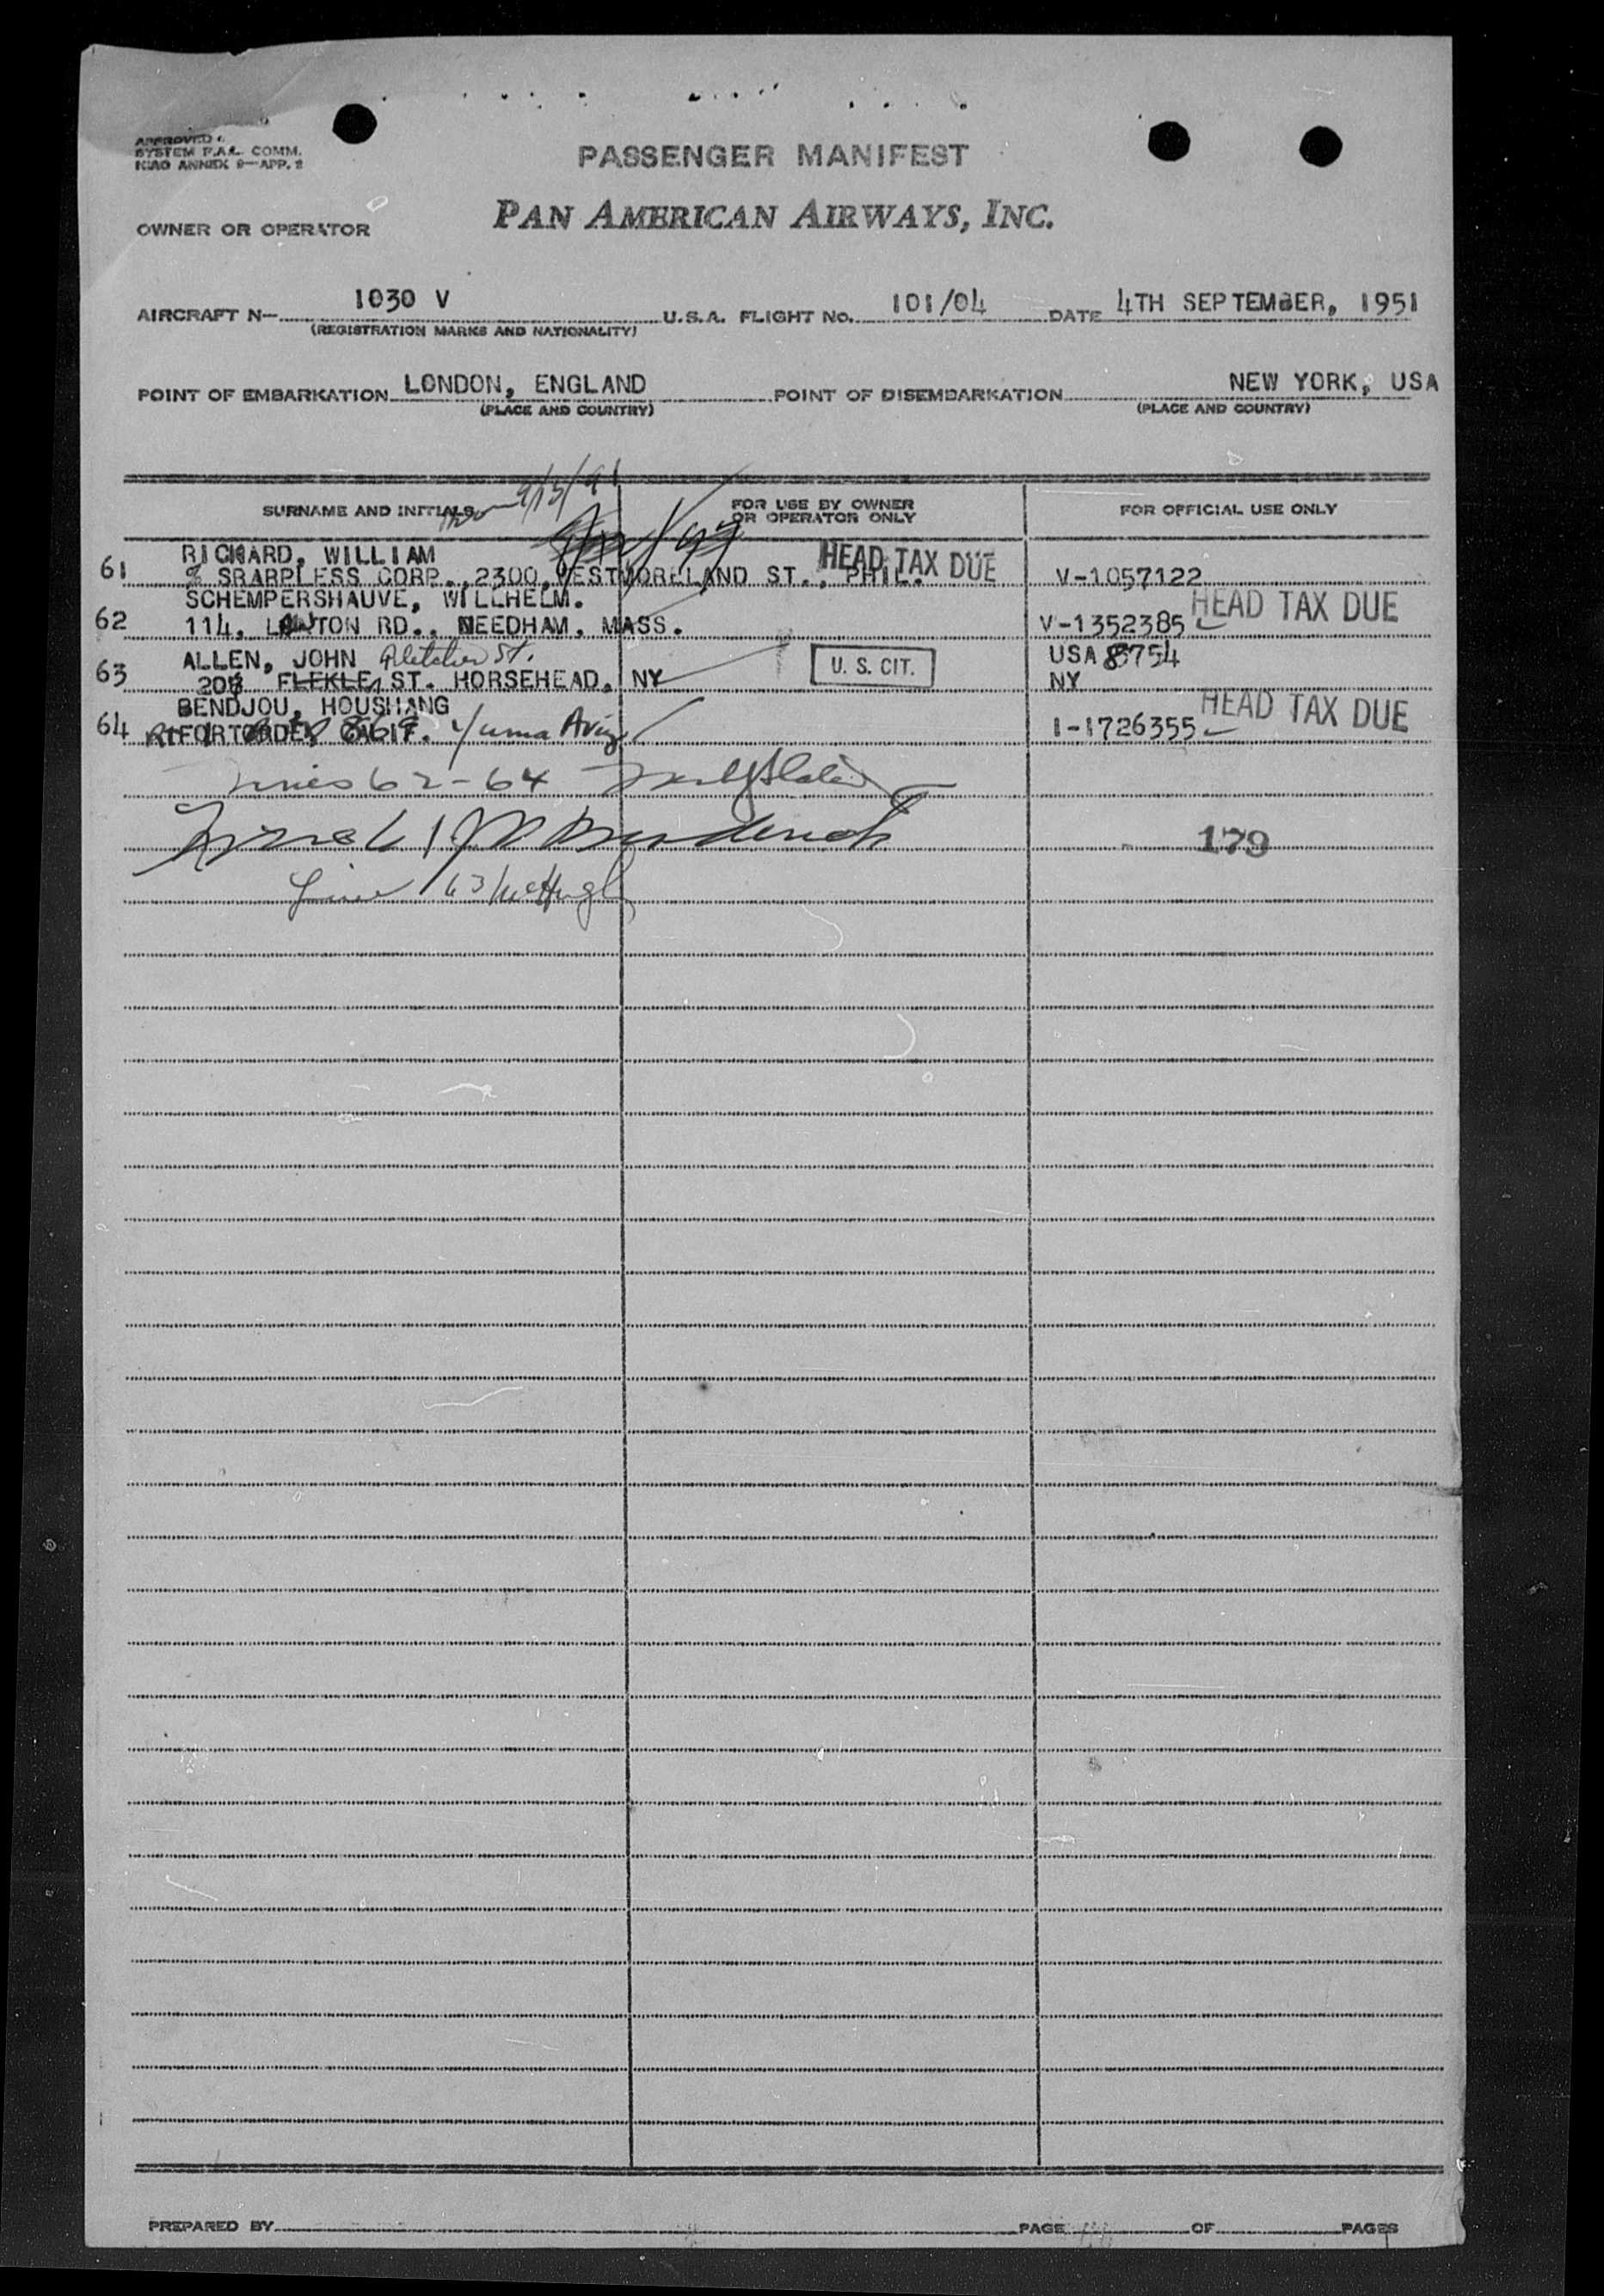 APPROVED
SYSTEM F.A.L. COMM.
ICAO ANNEX 9—APP. 2
PASSENGER MANIFEST
OWNER OR OPERATOR PAN AMERICAN AIRWAYS, INC.
AIRCRAFT N— 1030 V U.S.A. FLIGHT No. 101/04 DATE 4TH SEPTEMBER, 1951
(REGISTRATION MARKS AND NATIONALITY)
POINT OF EMBARKATION LONDON, ENGLAND POINT OF DISEMBARKATION NEW YORK, USA
(PLACE AND COUNTRY) (PLACE AND COUNTRY)
SURNAME AND INITIALS FOR USE BY OWNER OR OPERATOR ONLY FOR OFFICIAL USE ONLY
RICHARD, WILLIAM
61 % SRARPLESS CORP., 2300, WESTMORELAND ST., PHIL. HEAD TAX DUE V-1057122
SCHEMPERSHAUVE, WILLHELM.
62 114, LAWTON RD., NEEDHAM, MASS. V-1352385 HEAD TAX DUE
ALLEN, JOHN Fletcher St. USA 8754
63 208 FLEKLE, ST. HORSEHEAD, NY U. S. CIT. NY
BENDJOU, HOUSHANG
64 FORT ORDE, CALIF. Yuma Ariz 1-1726355 HEAD TAX DUE
Lines 62-64
Line 61 179
Line 63 McHugh
PREPARED BY PAGE OF PAGES